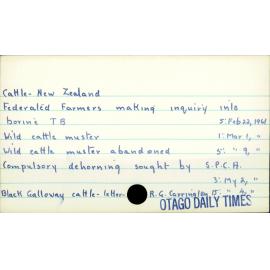 Cattle - New Zealand
Federated Farmers making inquiry into
bovine TB 5: Feb 22, 1961
Wild cattle muster 1: Mar 1, "
Wild cattle muster abandoned 5: " 9, "
Compulsory dehorning sought by S.P.C.A.
3: My 2, "
Black Galloway cattle - letter - R.G. Carrington 15: " 4, "
OTAGO DAILY TIMES